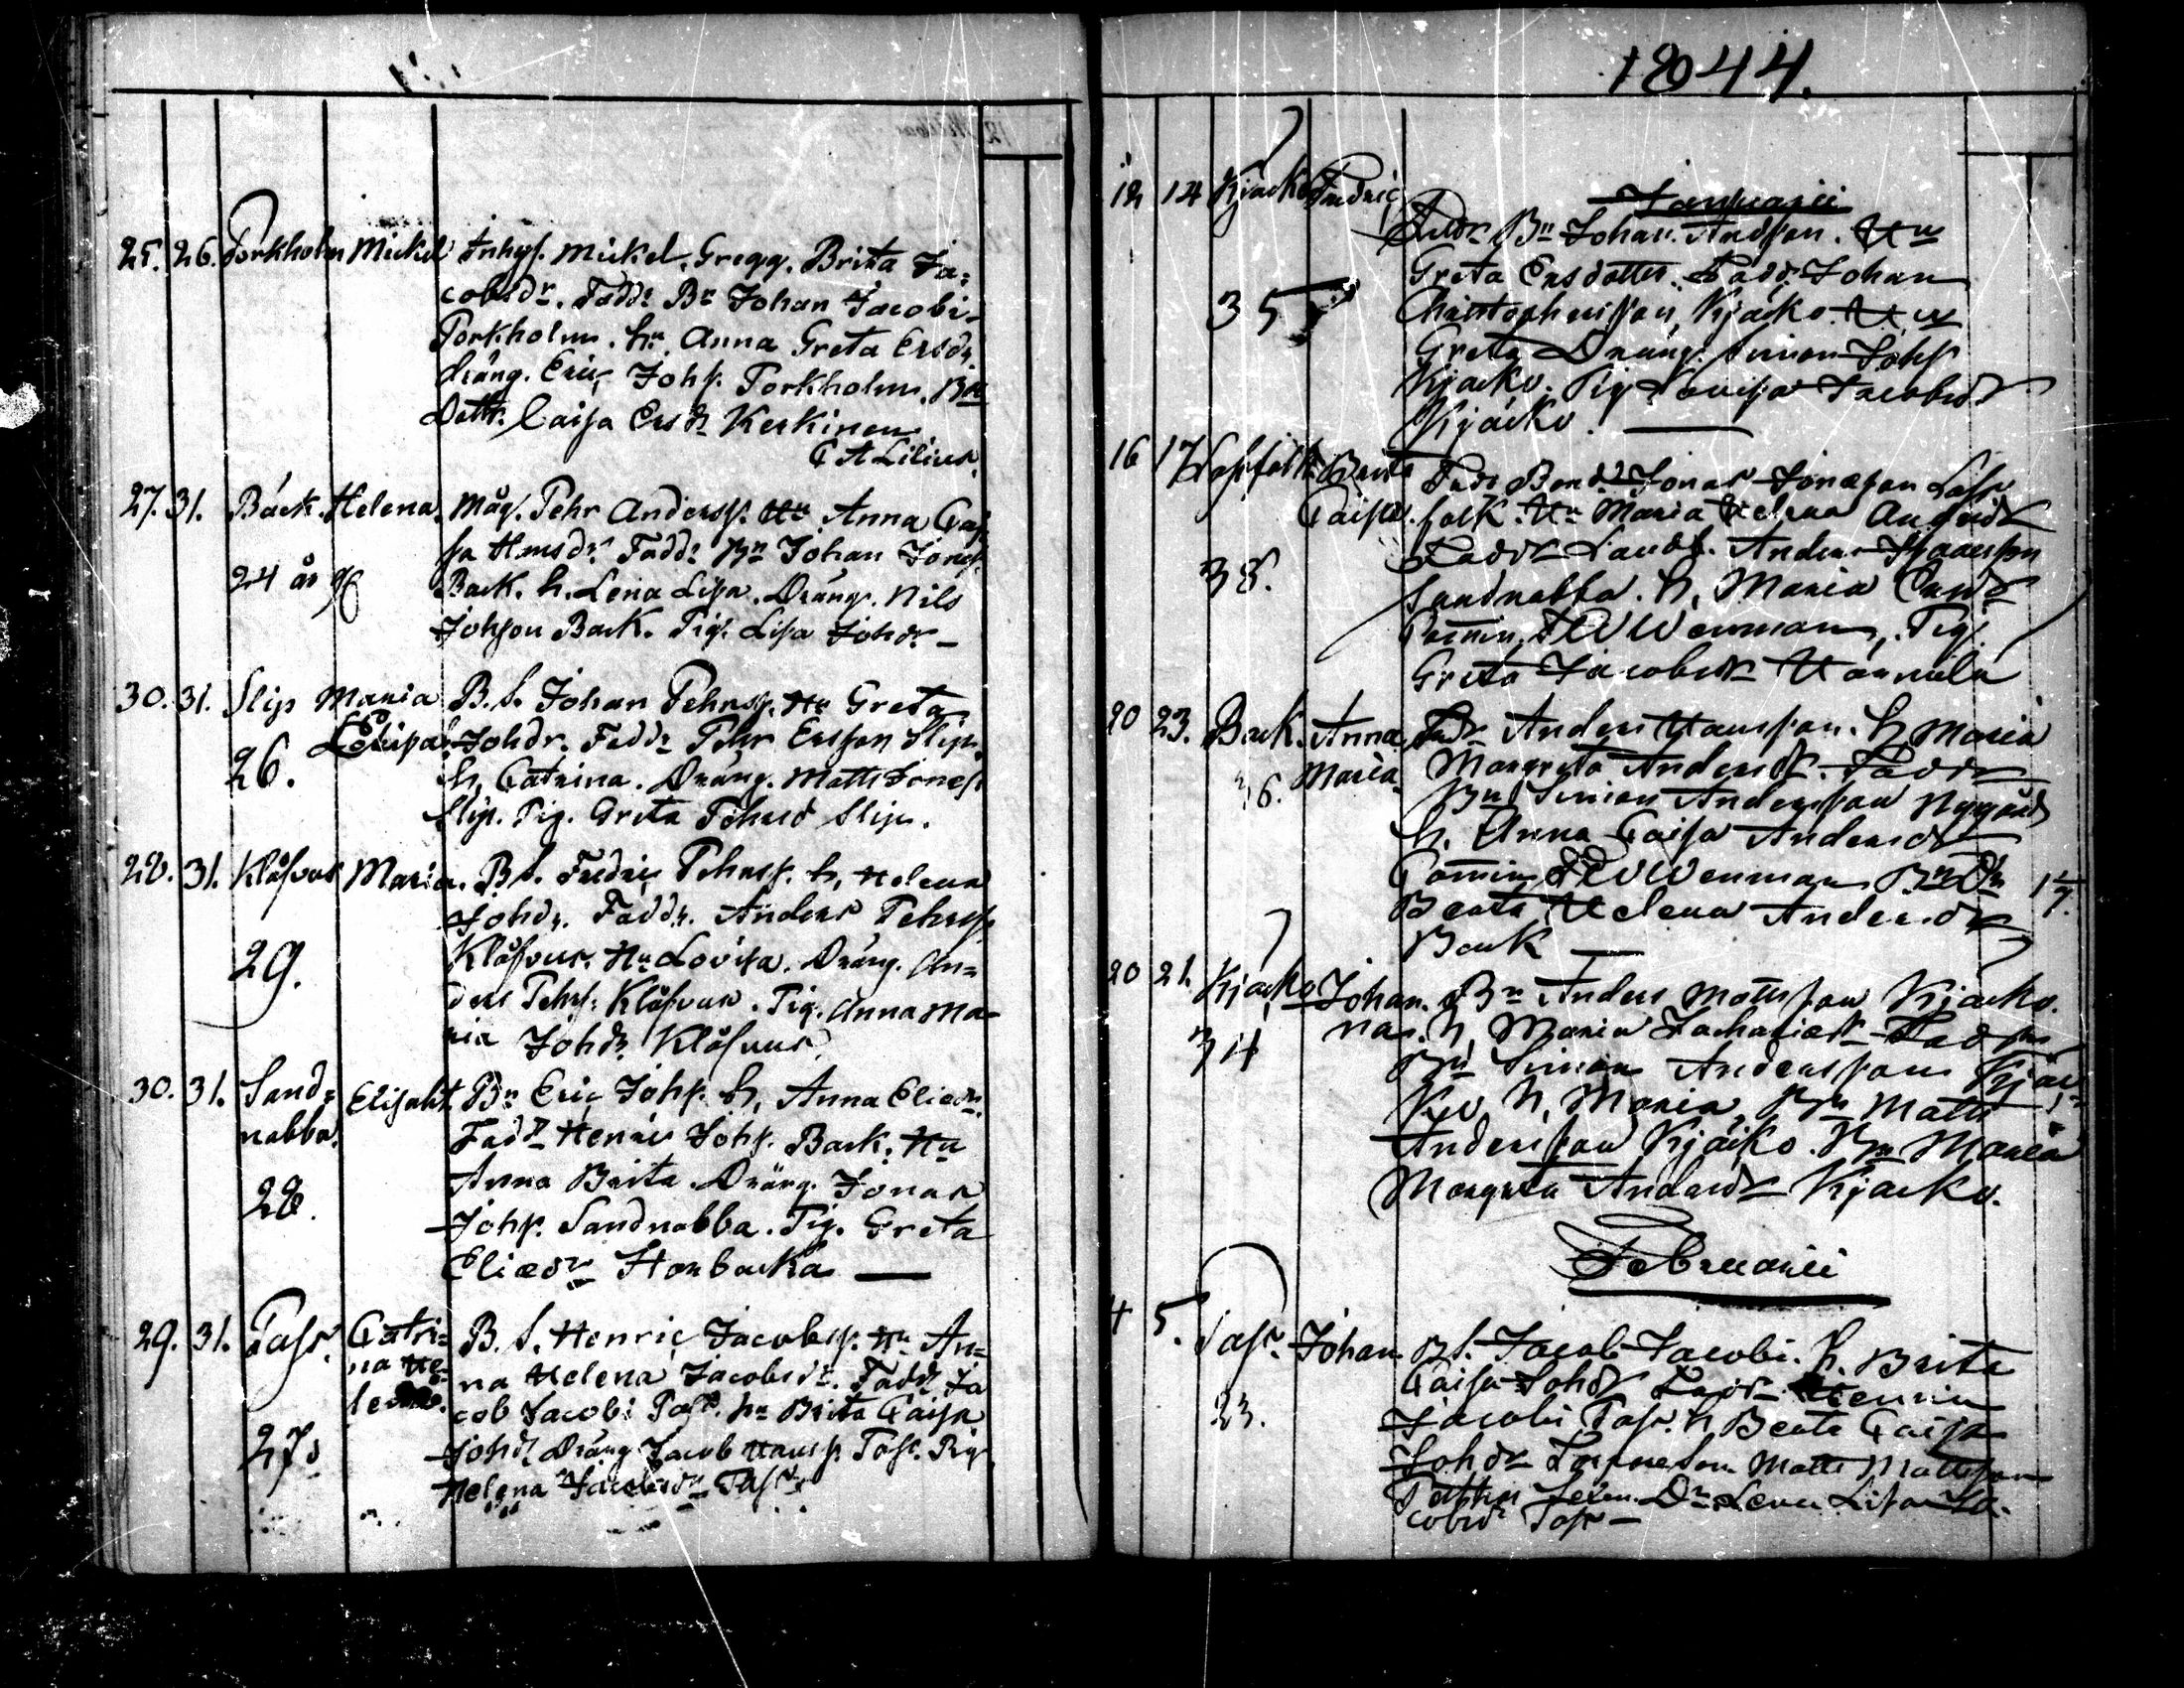 25. 26. Porkholm Mickel Inhys. Mickel Gregg. Brita Ja=
cobsdr. Faddr Bn Johan Jacobi
Porkholm. hu Anna Greta Ersdr
dräng. Eric Johs. Porkholm. Bn
Dottr. Caisa Ersdr Keskinen
C A Lilius.
27. 31. Back. Helena. Måg. Pehr Anderss. Hu Anna Cai
sa Hmsdr Faddr Bn Johan Jones.
24 år Back. h. Lena Lisa. Dräng. Nils
Johson Back. Pig. Lisa Johdr
30. 31. Slip Maria B. S. Johan Pehrss. Hu Greta
Lovisa Johdr. Faddr Pehr Ersson Slip.
26. h, Catrina. Dräng. Matts Jones
Slip. Pig. Greta Johnsd Slip.
28. 31. Klåfvus Maria. B. S. Fredric Pehrss. h, Helena
Johdr. Faddr. Anders Pehrss
29. Klåfvus. Hu Lovisa. Dräng. An=
ders Pehrs. Klåfvus. Pig. Anna Ma=
ria Johdr Klåfvus.
30. 31. Sand= Elisabt. Bn Eric Johs. h, Anna Eliedr.
nabba. Faddr Henric Johs. Back. Hu
Anna Brita. Dräng. Jonas
28. Johs. Sandnabba. Pig. Greta
Eliædr Storbacka
29. 31. Pass. Catri= B. S. Henric Jacobss. Hu An=
na He= na Helena Jacobsdr. Faddr Ja
lena. cob Jacobi Pass. hu Brita Caisa
27. Johdr Dräng Jacob Hanss. Pass. Pig
Helena Jacobsdr Pass.
1844.
Januarii
12 14 Kjäcko Fredric Faddr Bn Johan Andsson. Hu
Greta Ersdotter. Faddr Johan
35 Christophersson, Kjäcko. Hu
Greta Dräng. Simon Johs
Kjäcko. Pig Lovisa Jacobsdr
Kjäcko.
16 17 Lassfolk Brita Bond. Jonas Jonæson Lass
Caisa. folk. Hu Maria Helena Andersdr
Faddr Landb. Anders
38. Sandnabba. h, Maria
Wenman, Pig.
Greta Jacobsdr Hannula
20 23. Back. Anna Anders Hansson. h Maria
Maria Margreta Andersdr. Faddr
36. Bn Simon Andersson Nygård
h. Anna Caisa Andersdr
Wenman Bn Dr
Beata Helena Andersdr
Back
20 21. Kjäcko Johan. Bn Anders Mattsson Kjäcko.
nas. h, Maria Zachariædr Faddr
34 Bn Simon Andersson Kjäc=
ko h, Maria, Bn Matts
Andersson Kjäcko. Maria
Margreta Andersdr Kjäcko.
Februarii
4 5. Pass. Johan B S. Jacob Jacobi. h. Brita
Caisa Johdr Faddr Henric
23. Jacobi Pass. h Beata Caisa
Johdr Matts Mattsson
Dr Lena Lisa Ja=
cobsdr Pass